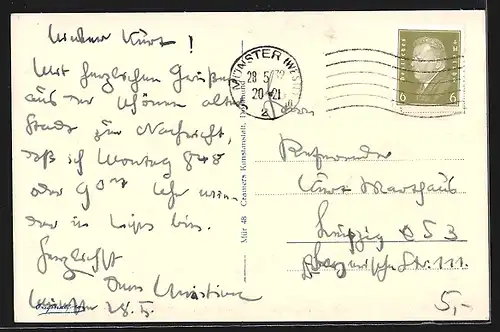 Lieber Kurt!
Mit herzlichen Grüßen
aus der schönen alten
Stadt zur Nachricht,
daß ich Montag 8 48
oder 9 Uhr wie-
der in Lpz bin.
Herzlichst
Dein
Münster 28. 5.
Mür 48 Cramers Kunstanstalt, Dortmund
MÜNSTER (WESTF)
28 5 32
20-21
2
6
6
Herrn
Referendar
Kurt
Leipzig O 53
Str. 111.
5,-